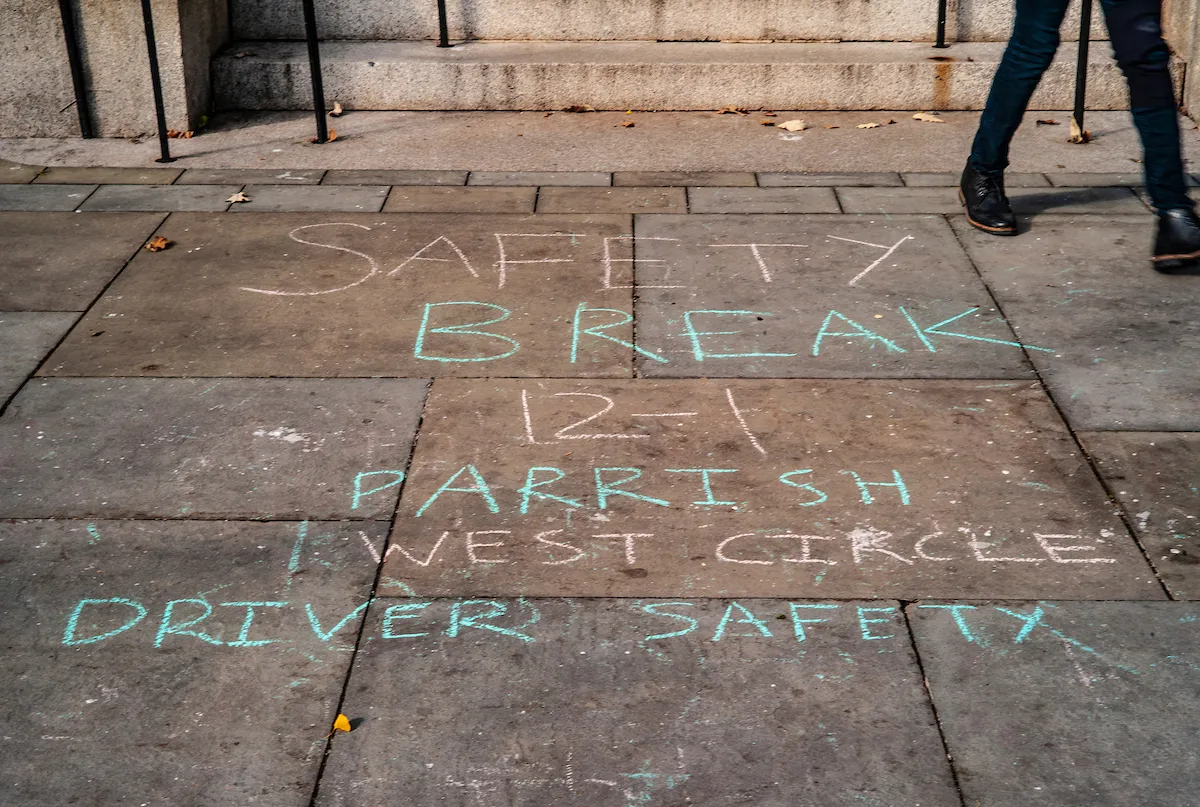 SAFETY
BREAK
12-1
PARRISH
WEST CIRCLE
DRIVER SAFETY